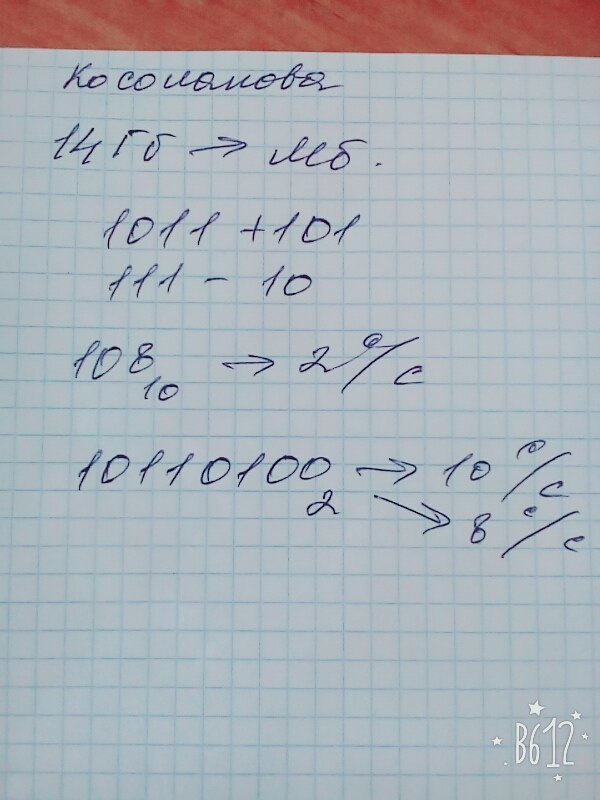 Косолапова
14 Гб → Мб.
1011 + 101
111 - 10
108₁₀ → 2 с/с
10110100₂ → 10 с/с
→ 8 с/с
B612